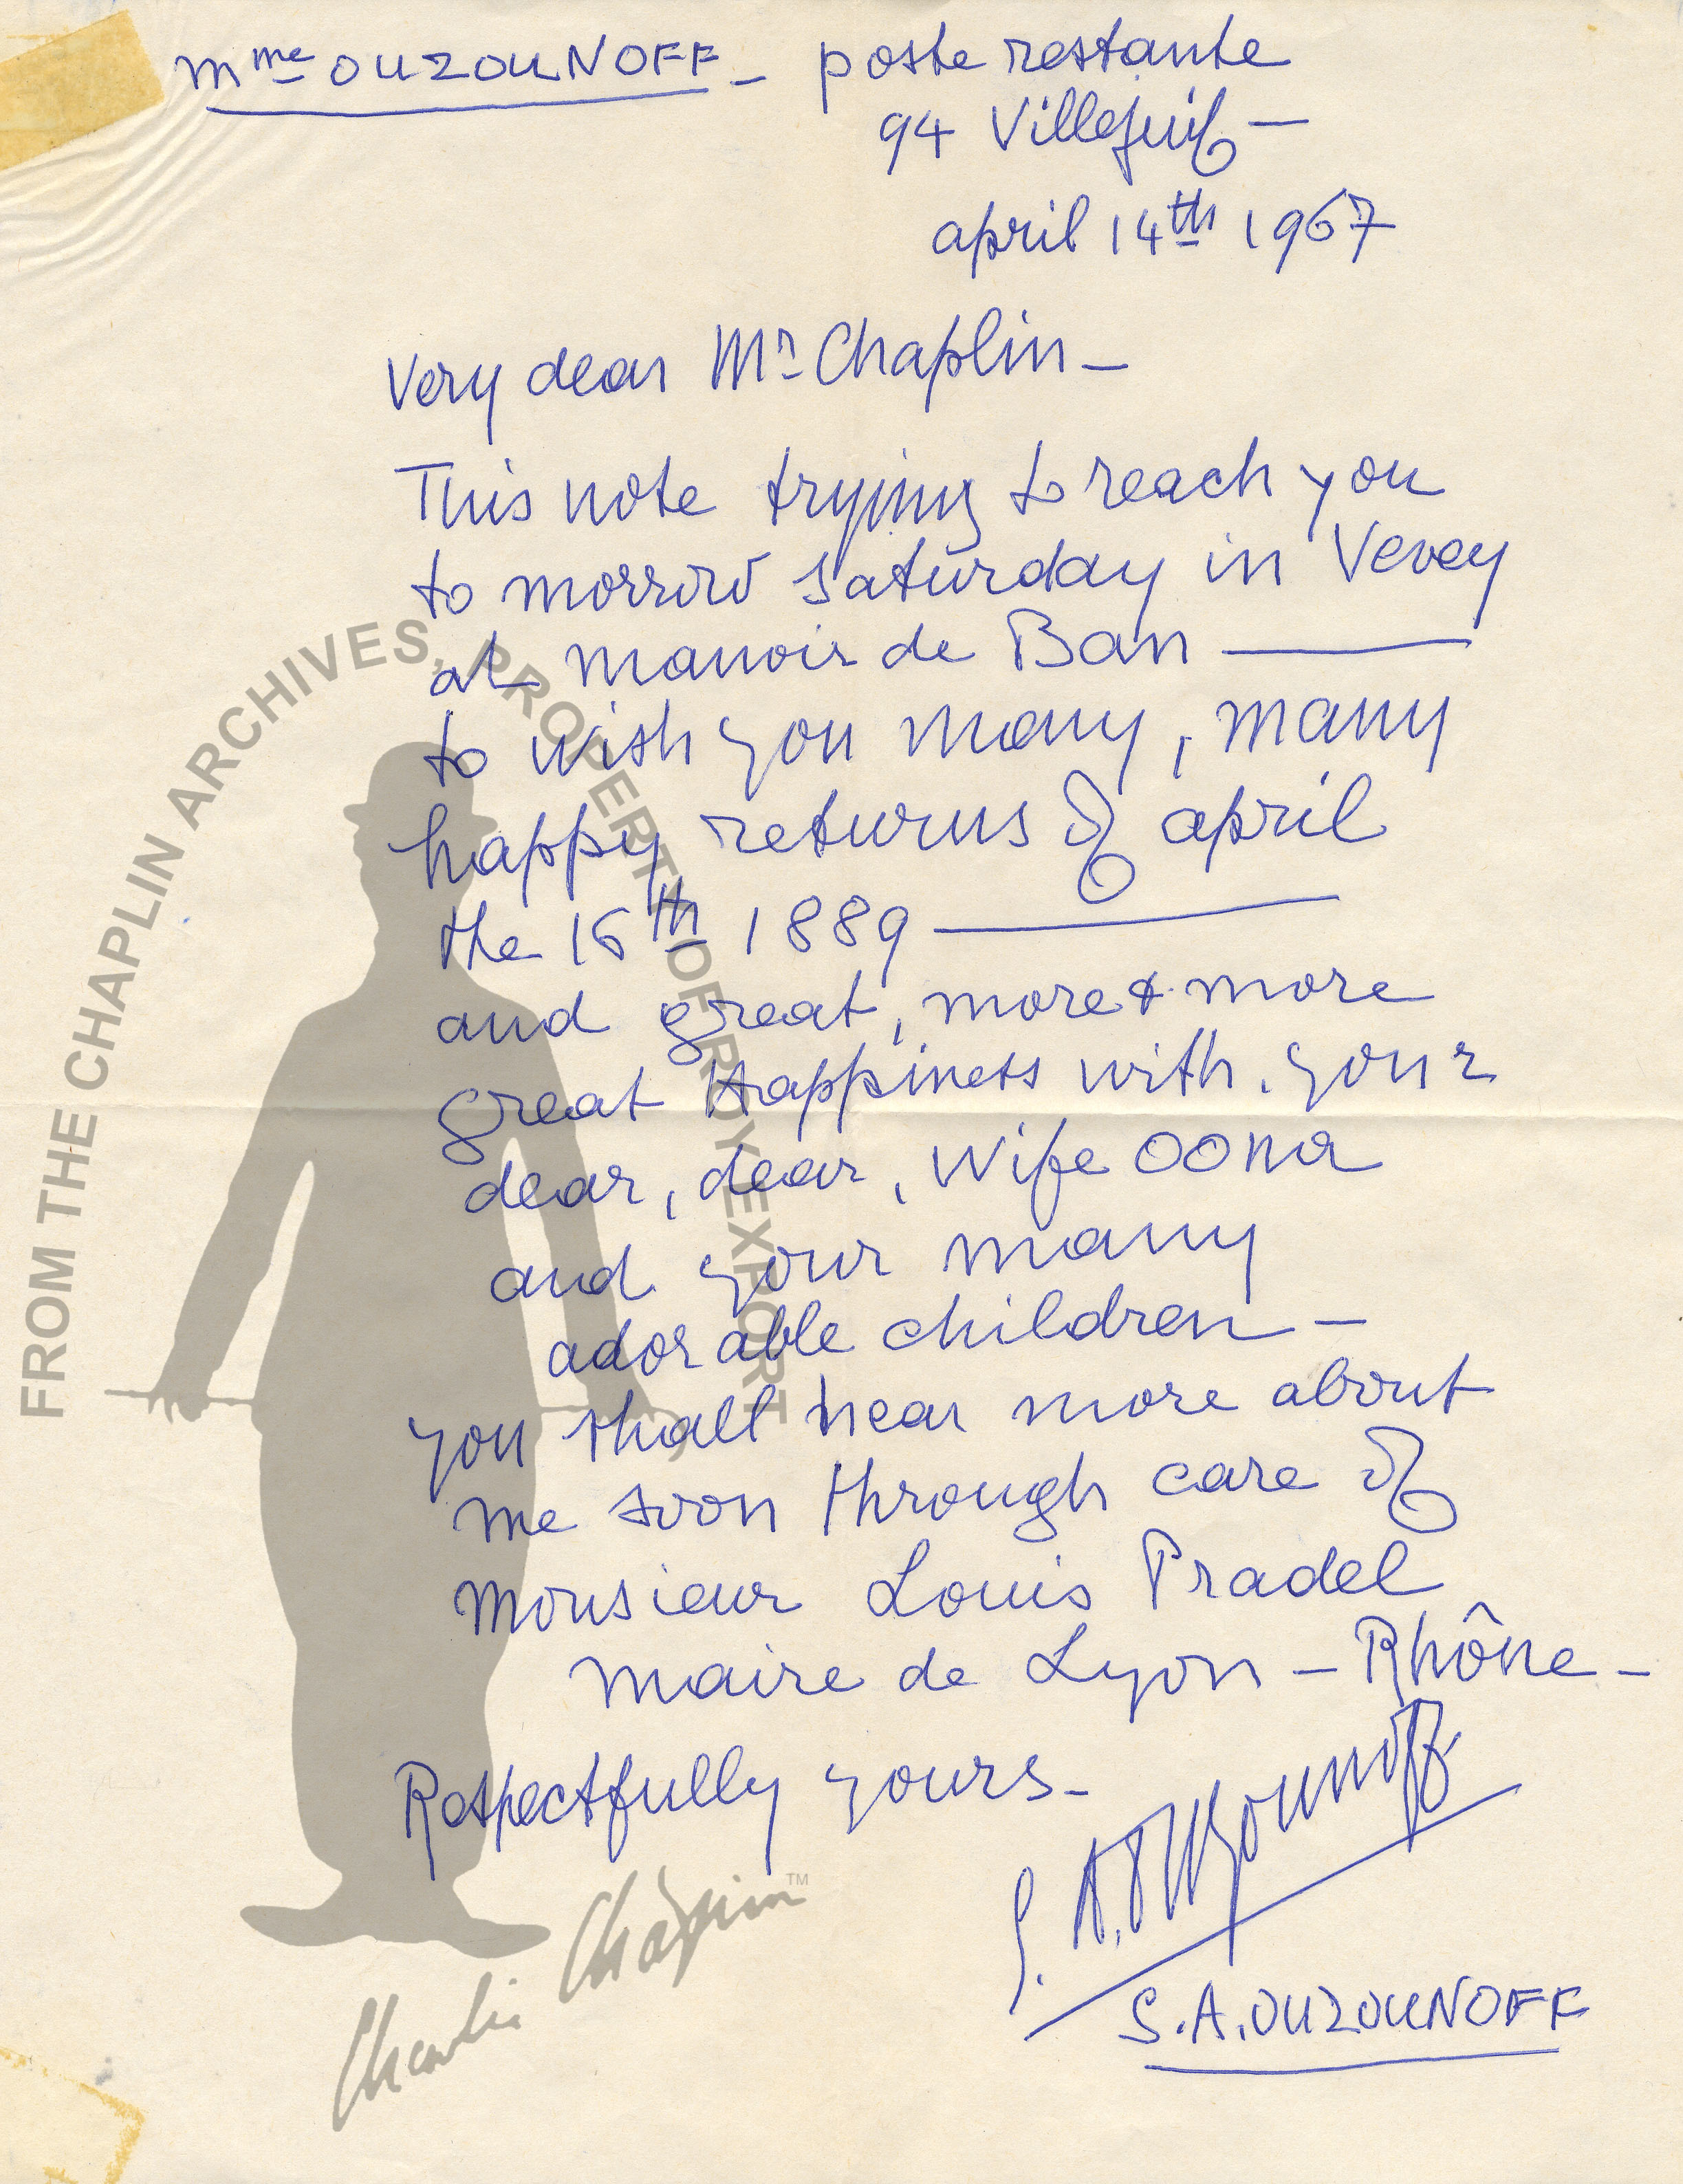 Mme OUZOUNOFF - poste restante
94 Villejuif -
april 14th 1967
Very dear Mr Chaplin -
This note trying to reach you
to morrow saturday in Vevey
at manoir de Ban —
to wish you many, many
happy returns of april
the 16th 1889 —
and great, more & more
great Happiness with your
dear, dear, Wife OONA
and your many
adorable children -
you shall hear more about
me soon through care of
Monsieur Louis Pradel
Maire de Lyon - Rhône -
Respectfully yours -
S. A. Ouzounoff
S. A. OUZOUNOFF
FROM THE CHAPLIN ARCHIVES, PROPERTY OF ROY EXPORT
Charlie Chaplin TM